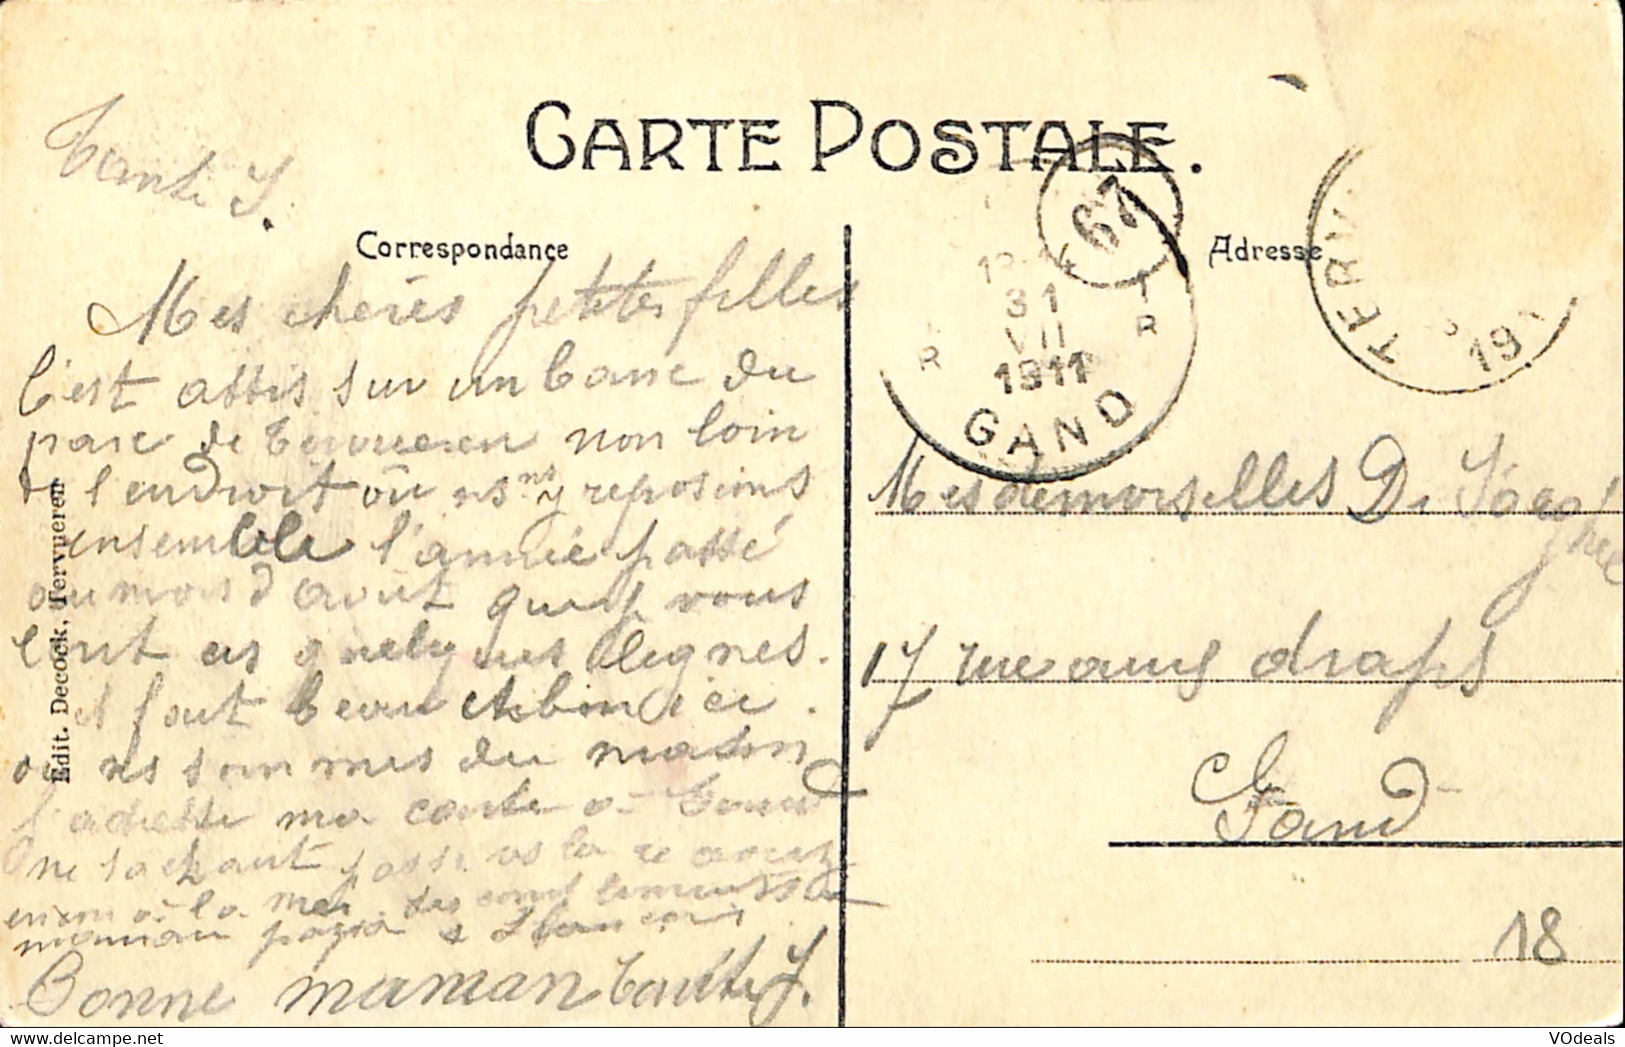 CARTE POSTALE.
Tante J.
Correspondance
Adresse
Mes chères petites filles
C'est assis sur un banc du
parc de Tervueren non loin
de l'endroit où ns ns y reposions
ensemble l'année passé
au mois d'août que je vous
écrit ces quelques lignes.
il fait beau et bon ici.
où ns sommes du matin
J'adresse ma carte à Gand
ne sachant pas si vs la recevrez
à la mer.
maman papa &
Bonne maman Tante J.
Edit. Decock, Tervueren
67
31
VII
1911
R
R
GAND
TERV
19
Mesdemoiselles De
17 rue aux draps
Gand
18
VOdeals